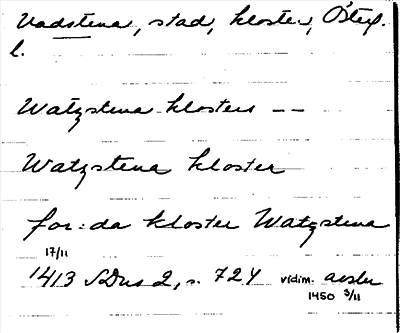 Vadstena, stad, kloster, Österg.
l.
Watzstena klosters — —
Watzstena kloster
for:da kloster Watzstena
17/11
1413 SDns 2, s. 724 vidim. avskr
1450 3/11